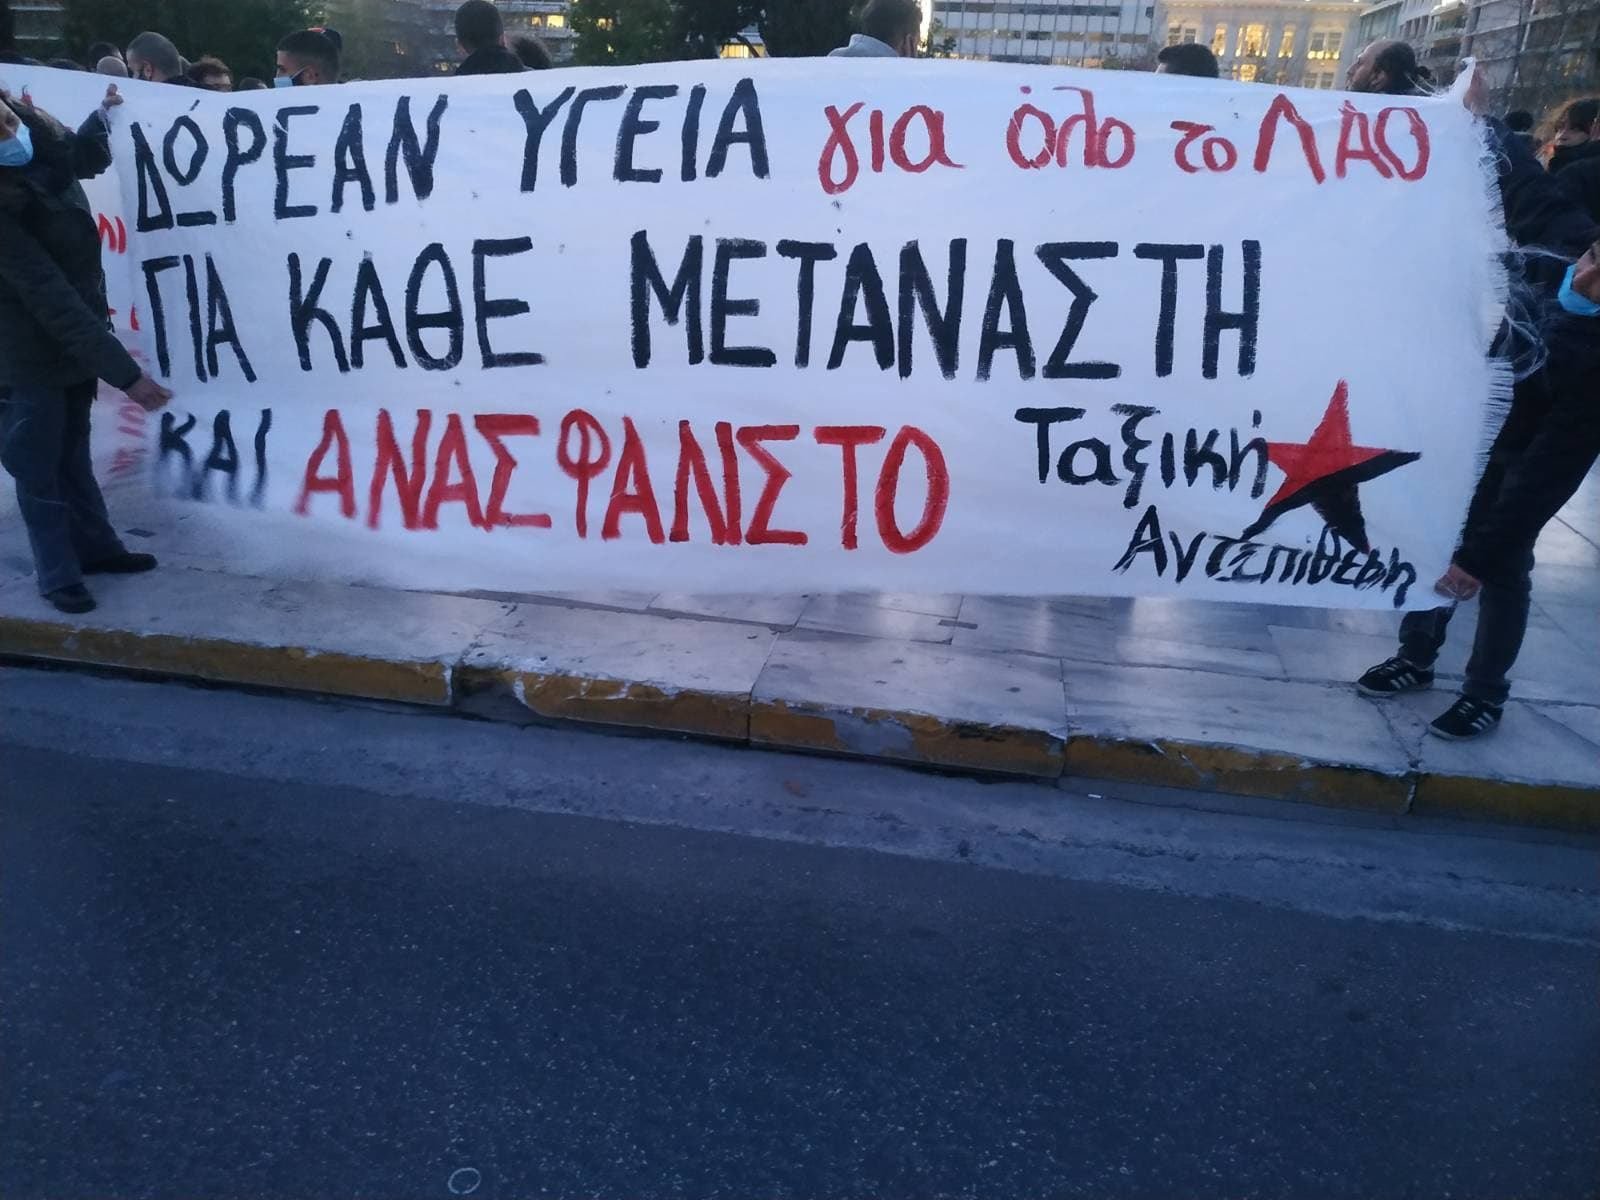 ΔΩΡΕΑΝ ΥΓΕΙΑ για όλο το ΛΑΟ
ΓΙΑ ΚΑΘΕ ΜΕΤΑΝΑΣΤΗ
ΚΑΙ ΑΝΑΣΦΑΛΙΣΤΟ
Ταξική
Αντεπίθεση